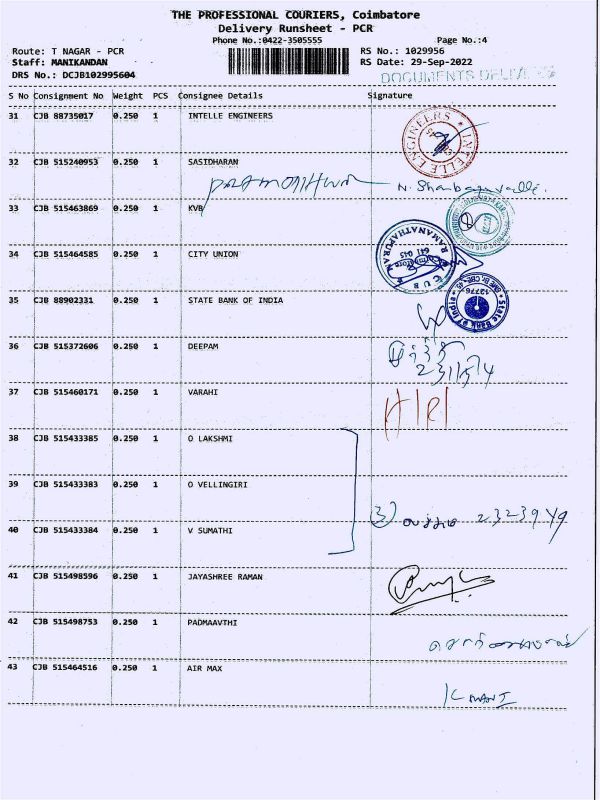 THE PROFESSIONAL COURIERS, Coimbatore
Delivery Runsheet - PCR
Phone No.:0422-3505555 Page No.:4
Route: T NAGAR - PCR RS No.: 1029956
Staff: MANIKANDAN RS Date: 29-Sep-2022
DRS No.: DCJB102995604 DOCUMENTS
S No Consignment No Weight PCS Consignee Details Signature
31 CJB 88735017 0.250 1 INTELLE ENGINEERS
INTELLE ENGINEERS
32 CJB 515240953 0.250 1 SASIDHARAN
33 CJB 515463869 0.250 1 KVB
34 CJB 515464585 0.250 1 CITY UNION
RAMANATHAPURAM
641 045
C U B
35 CJB 88902331 0.250 1 STATE BANK OF INDIA
State Bank of India
12776
36 CJB 515372606 0.250 1 DEEPAM
37 CJB 515460171 0.250 1 VARAHI
38 CJB 515433385 0.250 1 O LAKSHMI
39 CJB 515433383 0.250 1 O VELLINGIRI
40 CJB 515433384 0.250 1 V SUMATHI
41 CJB 515498596 0.250 1 JAYASHREE RAMAN
42 CJB 515498753 0.250 1 PADMAAVTHI
43 CJB 515464516 0.250 1 AIR MAX